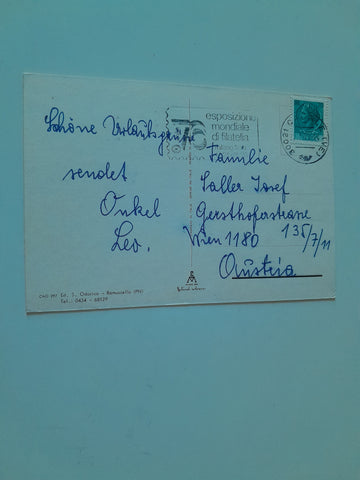 Schöne Urlaubsgrüße
sendet
Onkel
Leo.
76
esposizione
mondiale
di filatelia
30021 C
Familie
Saller Josef
Gersthoferstrasse
135/7/11
Wien 1180
Austria
Ed. S. Odorico - Ramuscello (PN)
Tel. 0434 - 68529